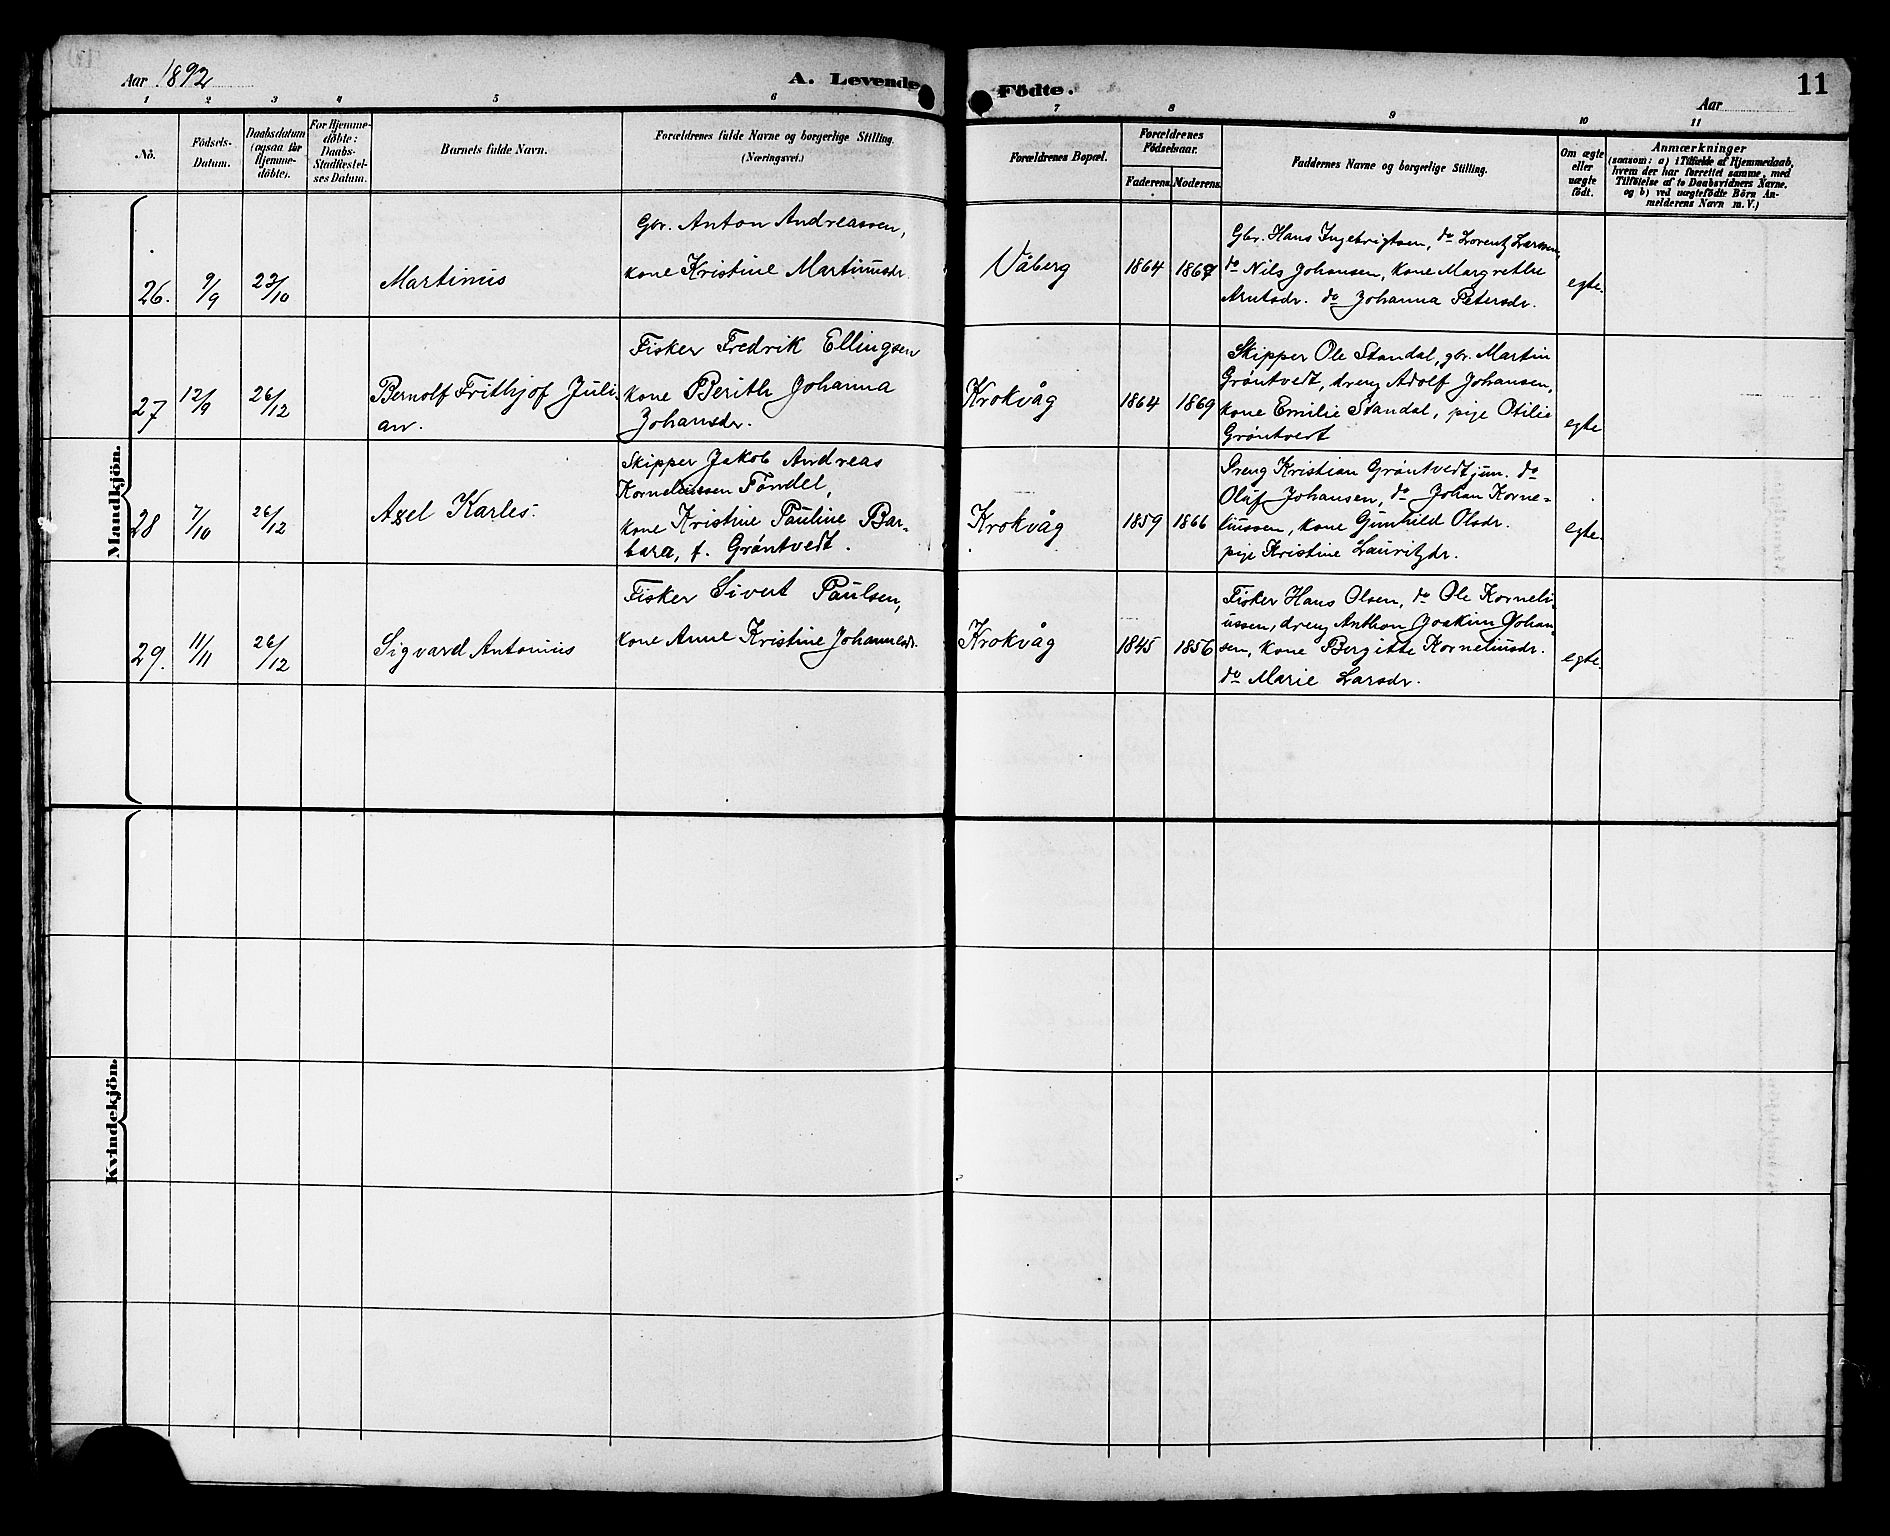 Aar 1892
A. Levende Födte.
11
Aar
1 2 3 4 5 6 7 8 9 10 11
Nô.
Födsels-
Datum.
Daabsdatum
(ogsaa for
Hjemme-
döbte).
For Hjemme-
döbte:
Daabs-
Stadfestel-
ses Datum.
Barnets fulde Navn.
Forældrenes fulde Navne og borgerlige Stilling.
(Næringsvei.)
Forældrenes Bopæl.
Forældrenes
Födselsaar.
Faderens. Moderens.
Faddernes Navne og borgerlige Stilling.
Om ægte
eller
uægte
födt.
Anmærkninger
(saasom: a) i Tilfælde af Hjemmedaab,
hvem der har forrettet samme, med
Tilföielse af to Daabsvidners Navne.
og b) ved uægtefödte Börn An-
melderens Navn m. V.)
Mandkjön.
26. 9/9 23/10 Martinus
Gbr. Anton Andreassen,
kone Kristine Martinusdr.
Våberg 1864 1867
Gbr. Hans Ingebrigtsen, do Lorentz Larsen,
do Nils Johansen, kone Margrethe
Arntsdr. do Johanna Petersdr.
egte.
27 12/9 26/12 Bernolf Frithjof Juli-
an.
Fisker Fredrik Ellingsen
kone Berith Johanna
Johansdr.
Krokvåg 1864 1869
Skipper Ole Standal, gbr. Martin
Gröntvedt, dreng Adolf Johansen,
kone Emilie Standal, pige Otilie
Gröntvedt
egte
28 7/10 26/12 Axel Karles.
Skipper Jakob Andreas
Korneliussen Töndel,
kone Kristine Pauline Bar-
bara, f. Gröntvedt.
Krokvåg 1859 1866
Dreng Kristian Gröntvedt jun. do
Oluf Johansen, do Johan Korne-
liussen, kone Gunhild Olsdr.
pige Kristine Lauritzdr.
egte.
29. 11/11 26/12 Sigvard Antonius
Fisker Sivert Paulsen,
kone Anne Kristine Johannesdr.
Krokvåg 1845 1856
Fisker Hans Olsen, do Ole Korneli-
ussen, dreng Anthon Joakim Johan-
sen, kone Bergitte Korneliusdr.
do Marie Larsdr.
egte.
Kvindekjön.